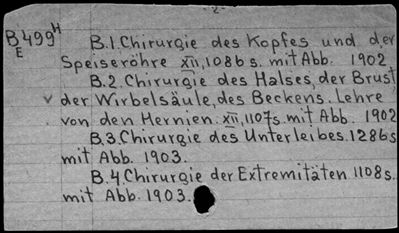 -2-
B499H
E
B.1. Chirurgie des Kopfes und der
Speiseröhre XII, 1086 s. mit Abb. 1902
B.2. Chirurgie des Halses, der Brust
v der Wirbelsäule, des Beckens. Lehre
von den Hernien. XII, 1107 s. mit Abb. 1902
B.3. Chirurgie des Unterleibes. 1286 s
mit Abb. 1903.
B.4. Chirurgie der Extremitäten 1108 s.
mit Abb. 1903.